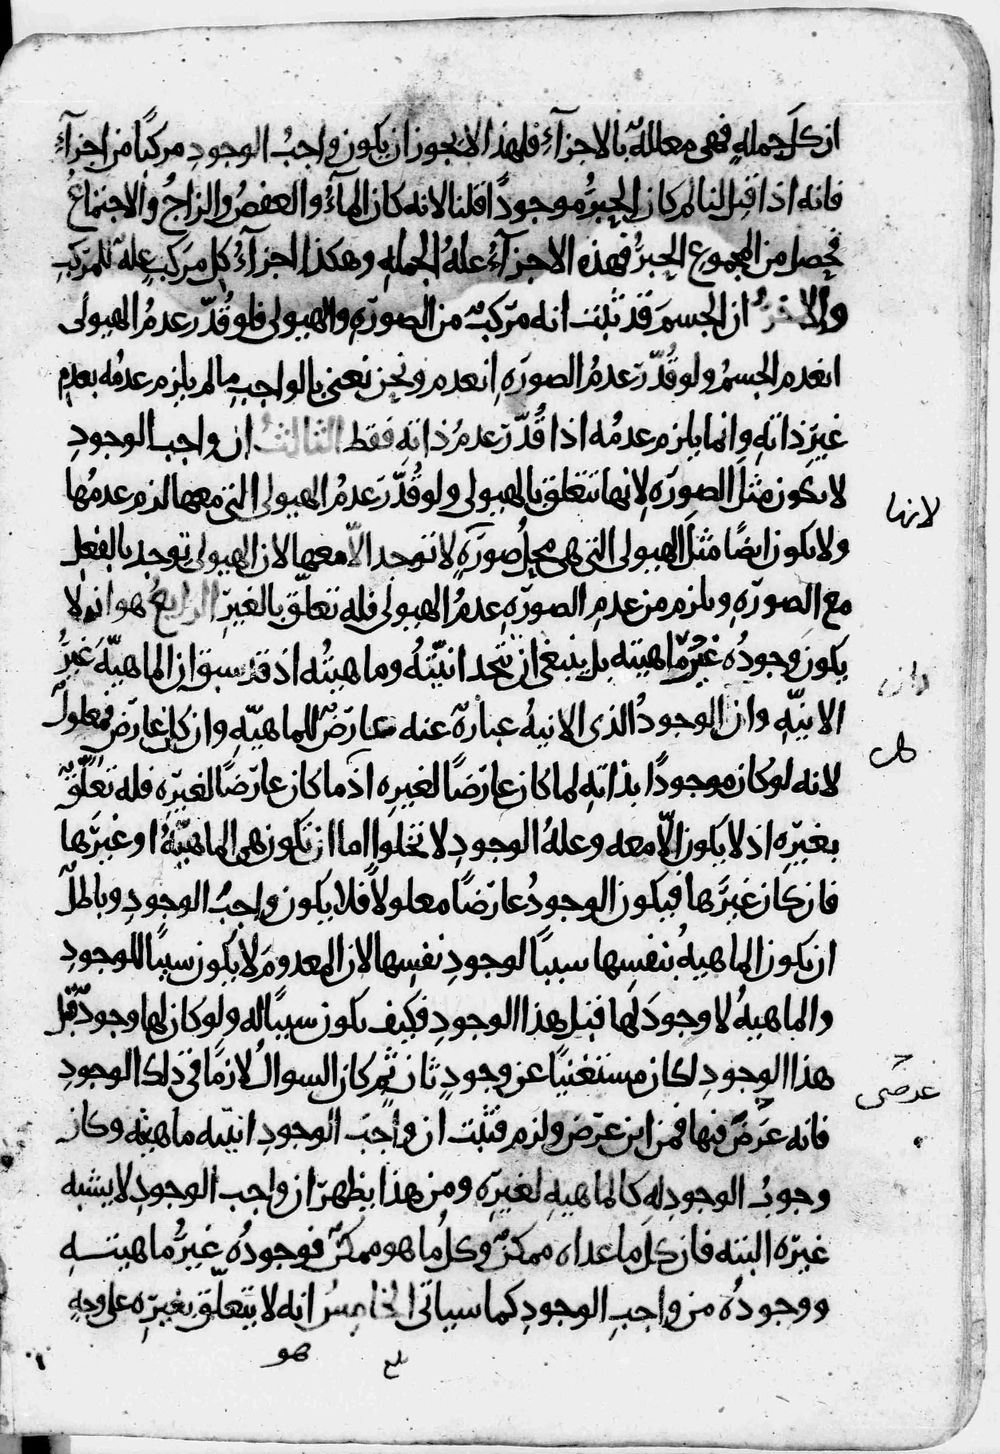 ان كل جملة فهى معللة بالاجزآء فلهذا لا يجوز ان يكون واجبُ الوجودِ مركبًا من اجزآء
فانه اذا قيل لنا لم كان الحِبرُ موجودًا قلنا لانه كان المآءُ والعفصُ والزاجُ والاجتماعُ
فحصل من المجموع الحبرُ فهذه الاجزآءُ علةُ الجملةِ وهكذا اجزآءُ كل مركبٍ علة للمركبِ
والاخرُ ان الجسمَ قد ثبت انه مركبٌ من الصورةِ والهيولى فلو قُدّر عدمُ الهيولى
انعدم الجسمُ ولو قُدّر عدمُ الصورةِ انعدم ونحن نعنى بالواجبِ ما لم يلزم عدمُه بعدمِ
غيرِ ذاتهِ وانما يلزم عدمُه اذا قُدّر عدمُ ذاته فقط الثالثُ ان واجب الوجودِ
لا يكون مثلَ الصورةِ لانها تتعلق بالهيولى ولو قُدّر عدمُ الهيولى التى معها لزم عدمُها
ولا يكون ايضًا مثلَ الهيولى التى هى محلُ صورةٍ لا توجد الاّ معها لان الهيولى توجد بالفعل
مع الصورةِ ويلزم من عدمِ الصورةِ عدمُ الهيولى فله تعلّق بالغيرِ الرابعُ هو انه لا
يكون وجودُه غيرَ ماهيته بل ينبغى ان تتحد انيّتُه وماهيتُه اذ قد سبق ان الماهيّة غيرُ
الانيّةِ وان الوجودُ الذى الانيةُ عبارة عنه عارضٌ للماهيّةِ وان كل عارض فمعلولٌ
لانه لو كان موجودًا بذاتهِ لما كان عارضًا لغيرِه اذ ما كان عارضًا لغيرِه فله تعلّقٌ
بغيرِه اذ لا يكون الاّ معه وعلةُ الوجودِ لا تخلوا اما ان تكون هى الماهيّةُ او غيرَها
فان كان غيرَها فيكون الوجودُ عارضًا معلولاً فلا يكون واجبُ الوجودِ وباطلٌ
ان يكون الماهيةُ بنفسِها سببًا لوجودِ نفسِها لان المعدومَ لا يكون سببًا للوجودِ
والماهيةُ لا وجودَ لها قبل هذا الوجودِ فكيف يكون سببًا له ولو كان لها وجودٌ قبل
هذا الوجودِ لكان مستغنيًا عن وجودٍ ثانٍ ثم كان السوالُ لازمًا فى ذلك الوجودِ
فانه عرضٌ فيها فمن اين عرض ولزم فثبت ان واجبَ الوجودِ انيّته ماهيته وكان
وجوبُ الوجودِ له كالماهيةِ لغيرِه ومن هذا يظهر ان واجب الوجودِ لا يشبه
غيرَه البتة فان كل ما عداه ممكنٌ وكل ما هو ممكنٌ فوجودُه غيرُ ماهيتــهِ
ووجودُه من واجبِ الوجودِ كما سياتى الخامسُ انه لا يتعلّق بغيرِه على وجهٍ
هو
لانها
عرضى